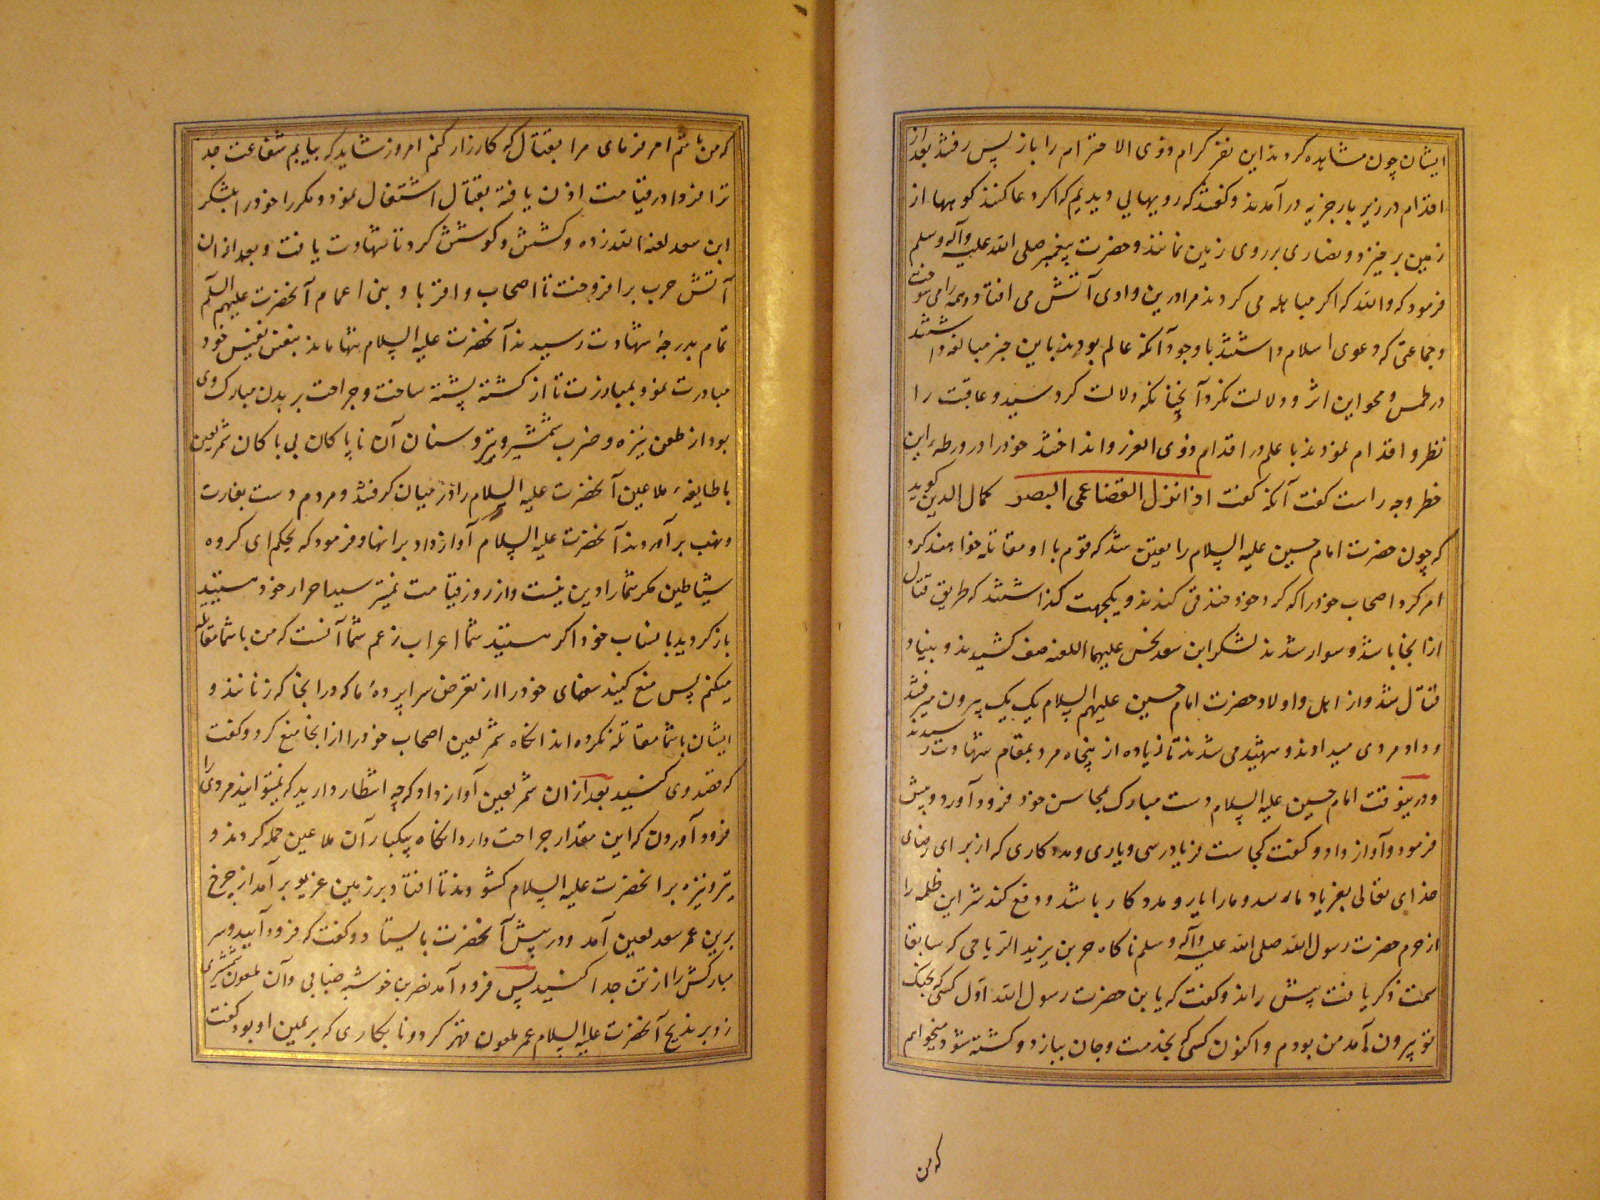 ایشان چون مشاهده کردند این نفر کرام و ذوی الاحترام را باز پس رفتند بعد از
اقدام در زیر بار جزیه در آمدند و گفتند که رویهایی دیدیم که اگر دعا کنند کوهها از
زمین برخیزد و نصاری بر روی زمین نمانند و حضرت پیغمبر صلی الله علیه وآله وسلم
فرمود که والله که اگر مباهله می کردند مر ایشان وادی آتش می افتاد و همه را می سوخت
و جماعتی که دعوی اسلام داشتند با وجود آنکه عالم بودند باین خبر مبالغه داشتند
در طمس و محو این اثر و دلالت نکرد آنچنانکه دلالت کرد سید و عاقب را
نظر و اقدام نمودند با علم در اقدام و ذوی الغرر و انداختند خود را در ورطه این
خطر و چه راست گفت آنکه گفت اذا نزل القضا عمی البصر کمال الدین گوید
که چون حضرت امام حسین علیه السلام را یقین شد که قوم با او مقاتله خواهند کرد
امر کرد اصحاب خود را که گرد خود خندقی کندند و یکجهت گذاشتند که طریق قتال
از آنجا باشد و سوار شدند لشکر ابن سعد نحس علیهما اللعنه صف کشیدند و بنیاد
قتال شد و از اهل و اولاد حضرت امام حسین علیهم السلام یک یک بیرون میرفتند
و داد مردی میدادند و شهید می شدند تا زیاده از پنجاه مرد بمقام شهادت رسیدند
و درینوقت امام حسین علیه السلام دست مبارک بمحاسن خود فرود آورد و پیش
فرمود و آواز داد و گفت کجاست فریادرسی و یاری و مددکاری که از برای رضای
خدای تعالی بفریاد ما رسد و ما را یار و مددکار باشد و دفع کند شر این ظلمه را
از حرم حضرت رسول الله صلی الله علیه وآله وسلم ناگاه حر بن یزید الریاحی که سابقا
سمت ذکر یافت پیش راند و گفت که یا بن حضرت رسول الله اول کسی که بجنگ
تو بیرون آمد من بودم و اکنون کسی که بخدمت و جان ببازد و کشته شود میخواهم
که من
که من باشم امر فرمای مرا بقتال که کارزار کنم امروز شاید که بیابم شفاعت جد
ترا فردا در قیامت اذن یافته بقتال اشتغال نمود و مکرر خود را بلشکر
ابن سعد لعنه الله زده و کشش و کوشش کرد تا شهادت یافت و بعد از آن
آتش حرب بر افروخت تا اصحاب و اقربا و بنی اعمام آنحضرت علیهم السلم
تمام بدرجهٔ شهادت رسیدند آنحضرت علیه السلام تنها ماند بنفس نفیس خود
مبادرت نمود بمبارزت تا از کشته پشته ساخت و جراحت بر بدن مبارک وی
بود از طعن نیزه و ضرب شمشیر و تیر و سنان آن ناپاکان بی باکان شمر لعین
با طایفهٔ ملاعین آنحضرت علیه السلام را در میان گرفتند و مردم دست بغارت
و نهب بر آوردند آنحضرت علیه السلام آواز داد بر آنها و فرمود که یحکم ای گروه
شیاطین مگر شما را دین نیست و از روز قیامت نمیترسید احرار خود هستید
بازگردید بانساب خود اگر هستید شما اعراب زعم شما آنست که من با شما مقاتله
میکنم پس منع کنید سفهای خود را از تعرض سراپردهٔ ما که در آنجا که زنانند و
ایشان با شما مقاتله نکرده اند آنگاه شمر لعین اصحاب خود را از آنجا منع کرد و گفت
که قصد وی کنید بعد از آن شمر لعین آواز داد که چه انتظار دارید که نمیتوانید مردی را
فرود آوردن که این مقدار جراحت دارد آنگاه بیکبار آن ملاعین حمله کردند و
تیر و نیزه بر آنحضرت علیه السلام گشودند تا افتاد بر زمین غریو بر آمد از چرخ
برین عمر سعد لعین آمد و در پیش آنحضرت بایستاد و گفت که فرود آیید و سر
مبارکش را از تن جدا کنید پس فرود آمد نضر بن خرشه ضبابی و آن ملعون شمشیری
زد بر مذبح آنحضرت علیه السلام عمر ملعون قهر کرد و نابکاری که بر یمین او بود گفت